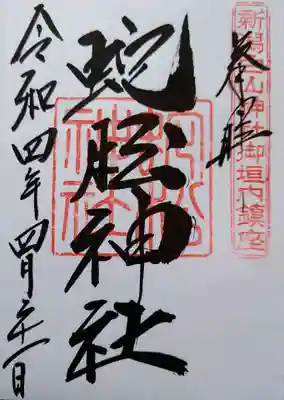 新潟白山神社御垣内鎮座
奉拝
蛇松神社
令和四年四月二十一日